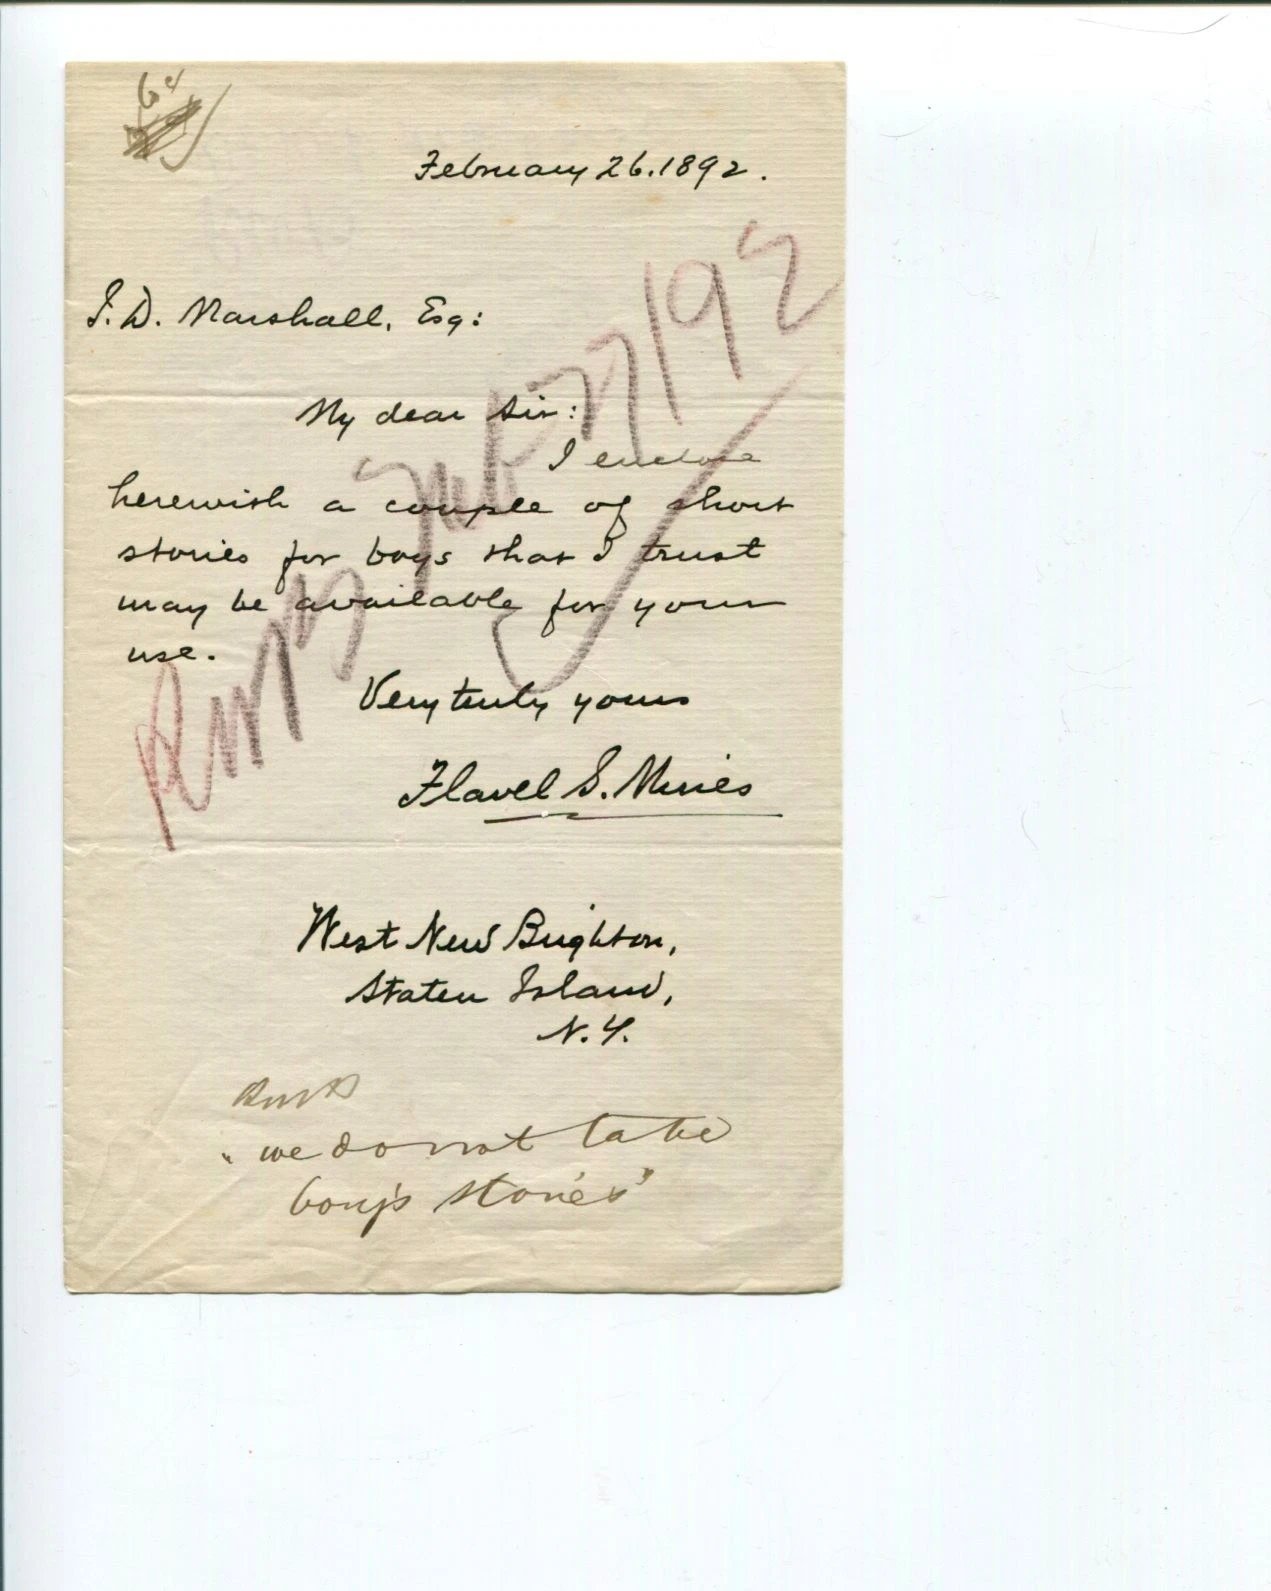 February 26. 1892.
I. D. Marshall, Esq:
My dear Sir:
I enclose
herewith a couple of short
stories for boys that I trust
may be available for your
use.
Very truly yours
Flavel S. Mines
West New Brighton,
Staten Island,
N. Y.
"we do not take
boy's stories"